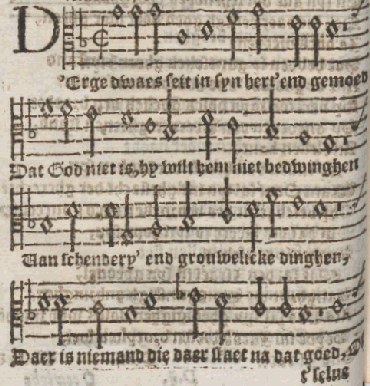 D'Erge dwaes seit in syn hert' end gemoed
Dat God niet is, hy wilt hem niet bedwinghen
Van schendery' end grouwelicke dinghen,
Daer is niemand die daer staet na dat goed,